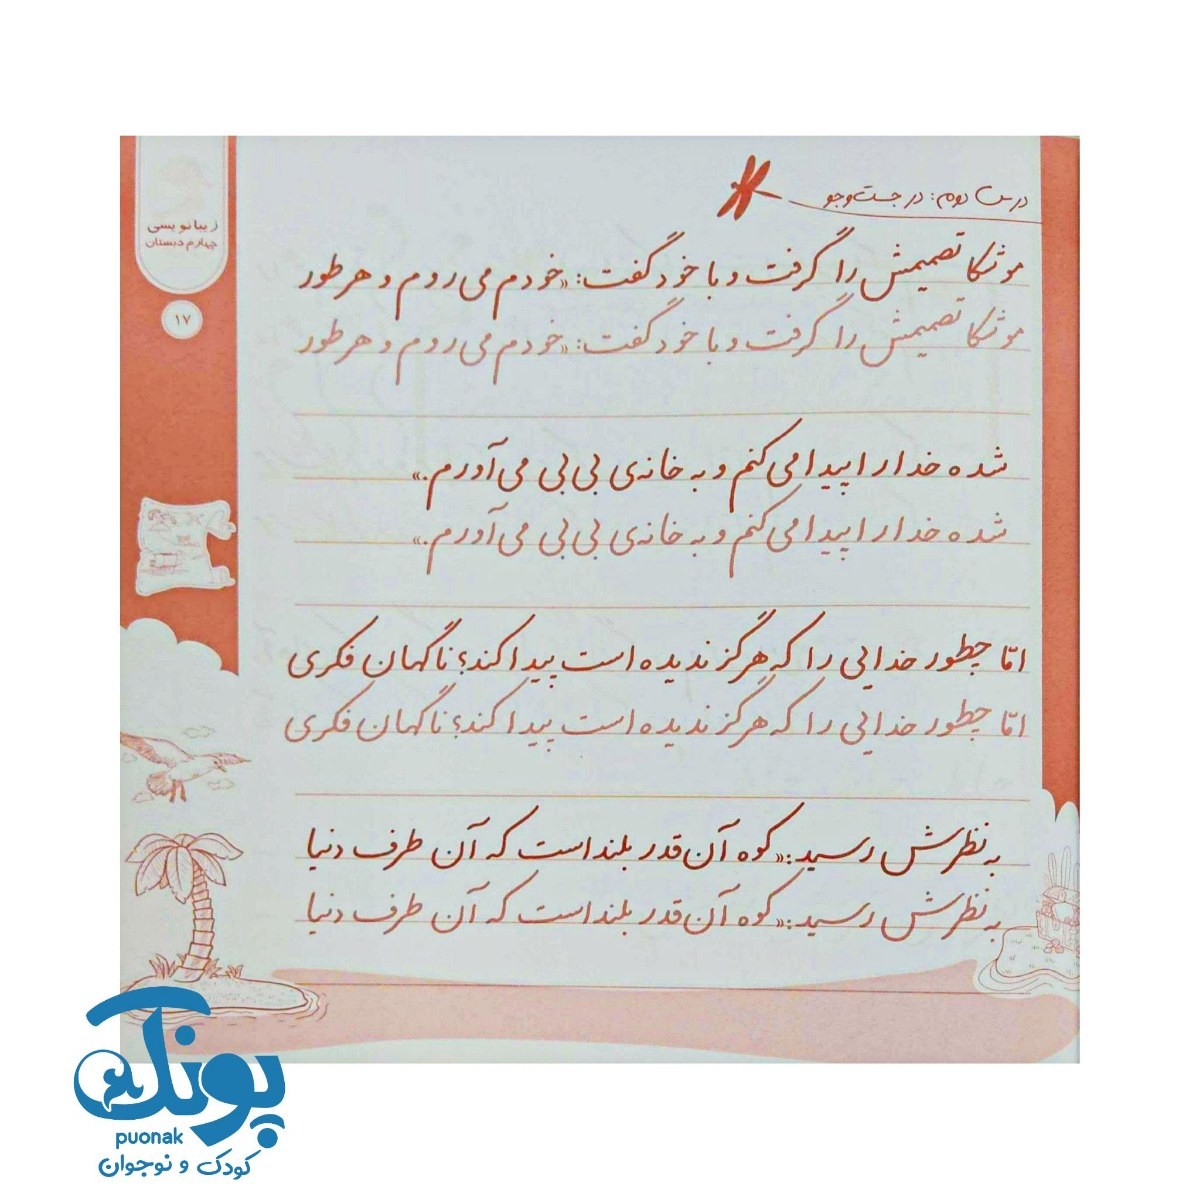 درس دوم: در جست‌وجو
زیبانویسی
چهارم دبستان
۱۷
موشکا تصمیمش را گرفت و با خود گفت: «خودم می‌روم و هر طور
موشکا تصمیمش را گرفت و با خود گفت: «خودم می‌روم و هر طور
شده خدا را پیدا می‌کنم و به خانه‌ی بی‌بی می‌آورم.»
شده خدا را پیدا می‌کنم و به خانه‌ی بی‌بی می‌آورم.»
امّا چطور خدایی را که هرگز ندیده است پیدا کند؟ ناگهان فکری
امّا چطور خدایی را که هرگز ندیده است پیدا کند؟ ناگهان فکری
به نظرش رسید: «کوه آن‌قدر بلند است که آن طرف دنیا
به نظرش رسید: «کوه آن‌قدر بلند است که آن طرف دنیا
پونک
puonak
کودک و نوجوان